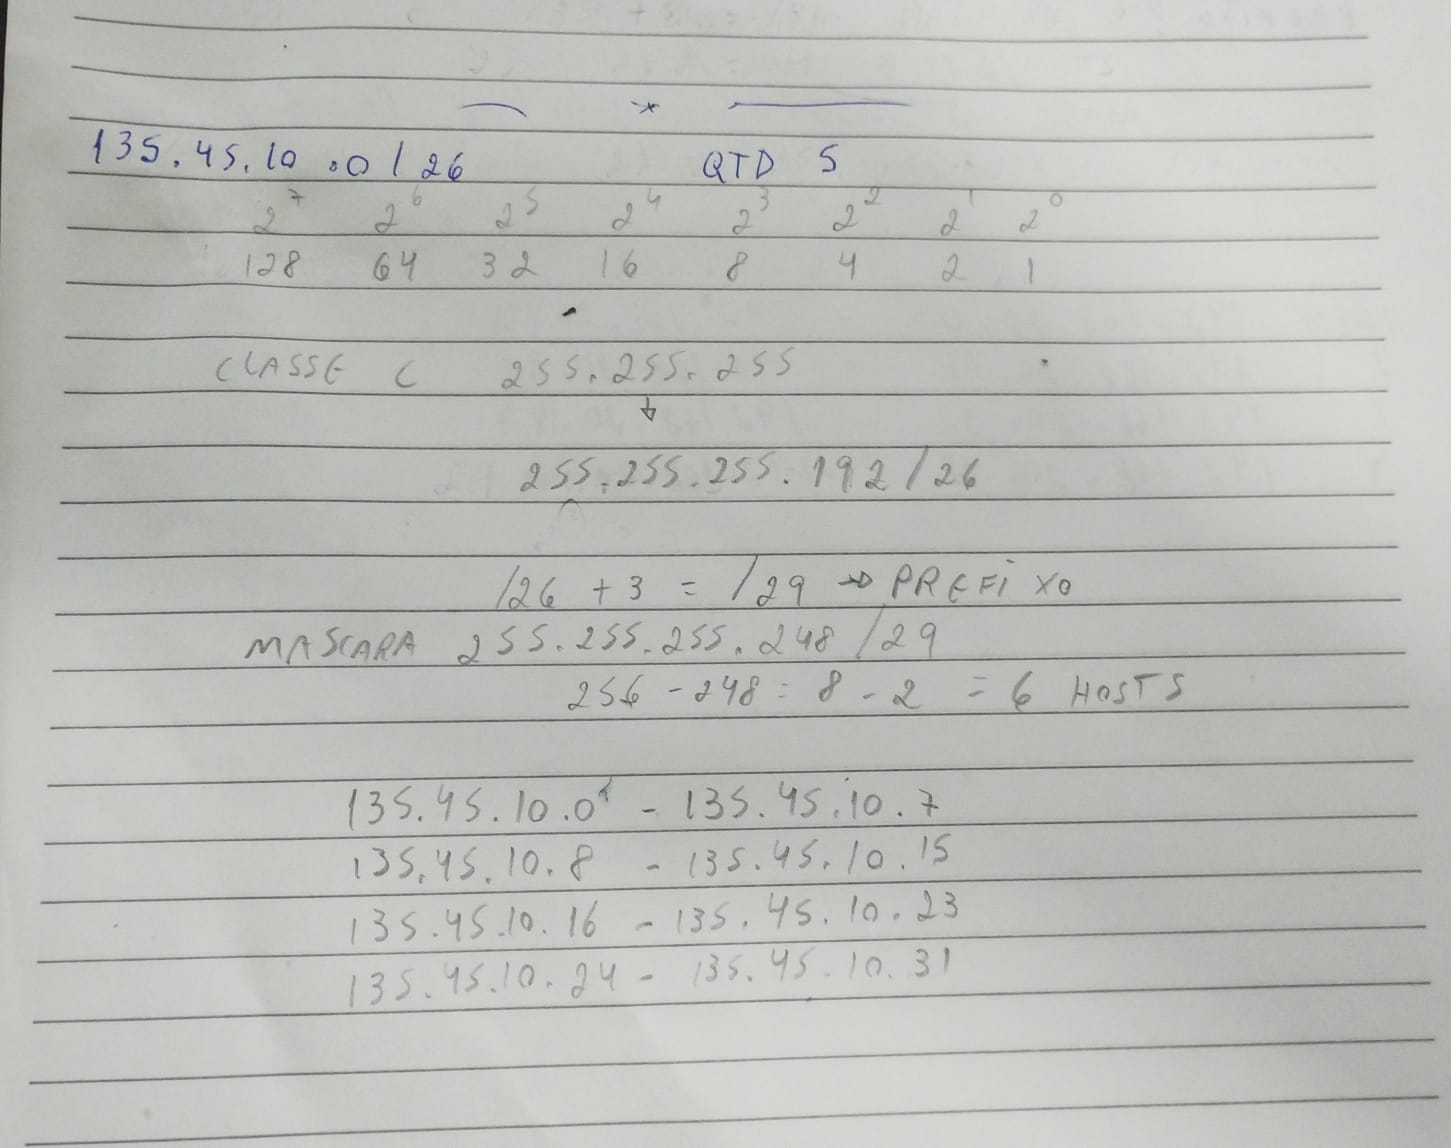 135.45.10.0/26 QTD 5
2^7 2^6 2^5 2^4 2^3 2^2 2^1 2^0
128 64 32 16 8 4 2 1
CLASSE C 255.255.255
255.255.255.192/26
/26 + 3 = /29 → PREFIXO
MASCARA 255.255.255.248/29
256 - 248 = 8 - 2 = 6 HOSTS
135.45.10.0 - 135.45.10.7
135.45.10.8 - 135.45.10.15
135.45.10.16 - 135.45.10.23
135.45.10.24 - 135.45.10.31